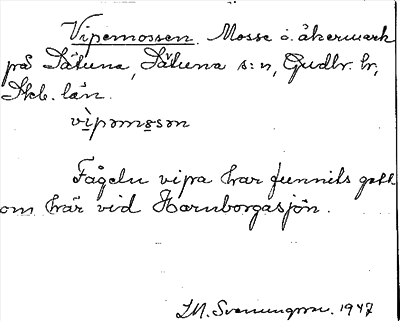 Vipemossen. Mosse o. åkermark
på Sätuna, Sätuna s:n, Gudh. hr,
Skb. län.
vìpəmo̱sən
Fågeln vipa har funnits gott
om här vid Hornborgasjön.
1947